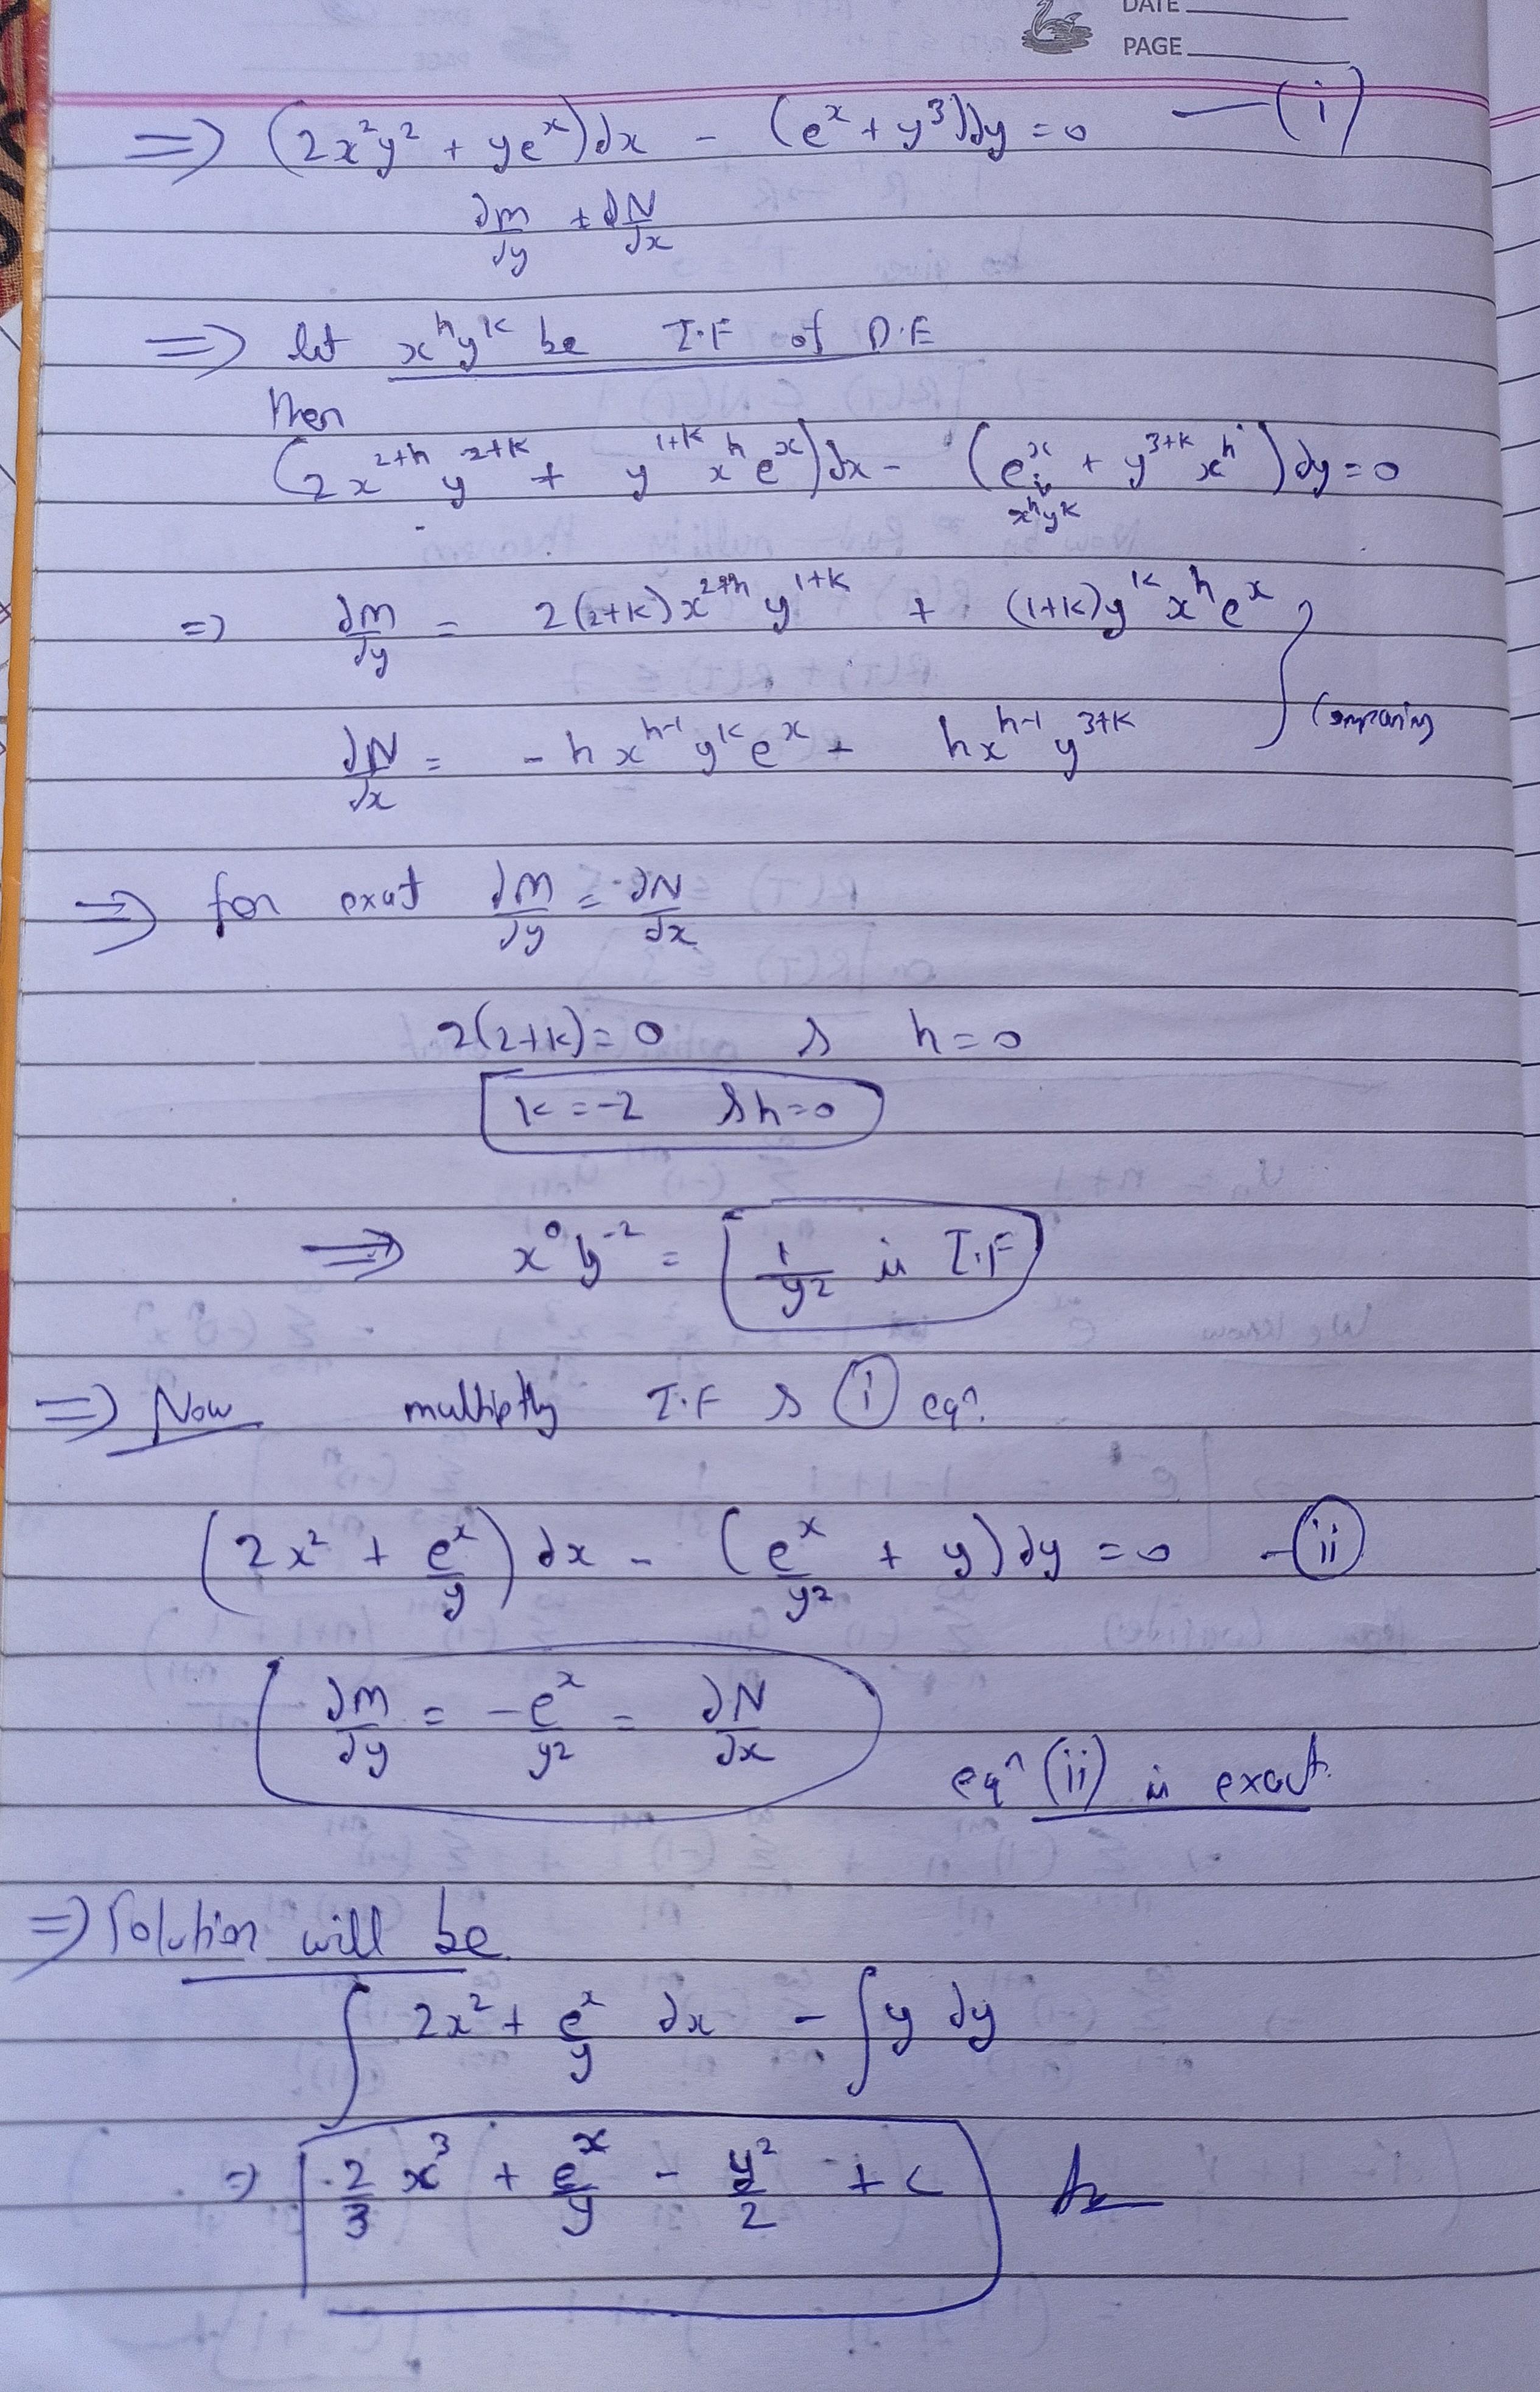 DATE
PAGE
⇒ (2x²y² + yeˣ)dx - (eˣ + y³)dy = 0 — (i)
∂m/∂y ≠ ∂N/∂x
⇒ let xʰyᵏ be I.F of D.E
then
(2x²⁺ʰ y²⁺ᵏ + y¹⁺ᵏ xʰ eˣ)dx - (eˣ xʰyᵏ + y³⁺ᵏ xʰ)dy = 0
⇒ ∂m/∂y = 2(2+k)x²⁺ʰ y¹⁺ᵏ + (1+k)yᵏ xʰ eˣ
comparing
∂N/∂x = - h xʰ⁻¹ yᵏ eˣ + h xʰ⁻¹ y³⁺ᵏ
⇒ for exact ∂m/∂y = ∂N/∂x
2(2+k) = 0 & h = 0
k = -2 & h = 0
⇒ x⁰ y⁻² = 1/y² is I.F
⇒ Now multiply I.F & (i) eqⁿ.
(2x² + eˣ/y) dx - (eˣ/y² + y)dy = 0 - (ii)
∂m/∂y = -eˣ/y² = ∂N/∂x
eqⁿ (ii) is exact.
⇒ Solution will be
∫ 2x² + eˣ/y dx - ∫ y dy
⇒ 2/3 x³ + eˣ/y - y²/2 + c